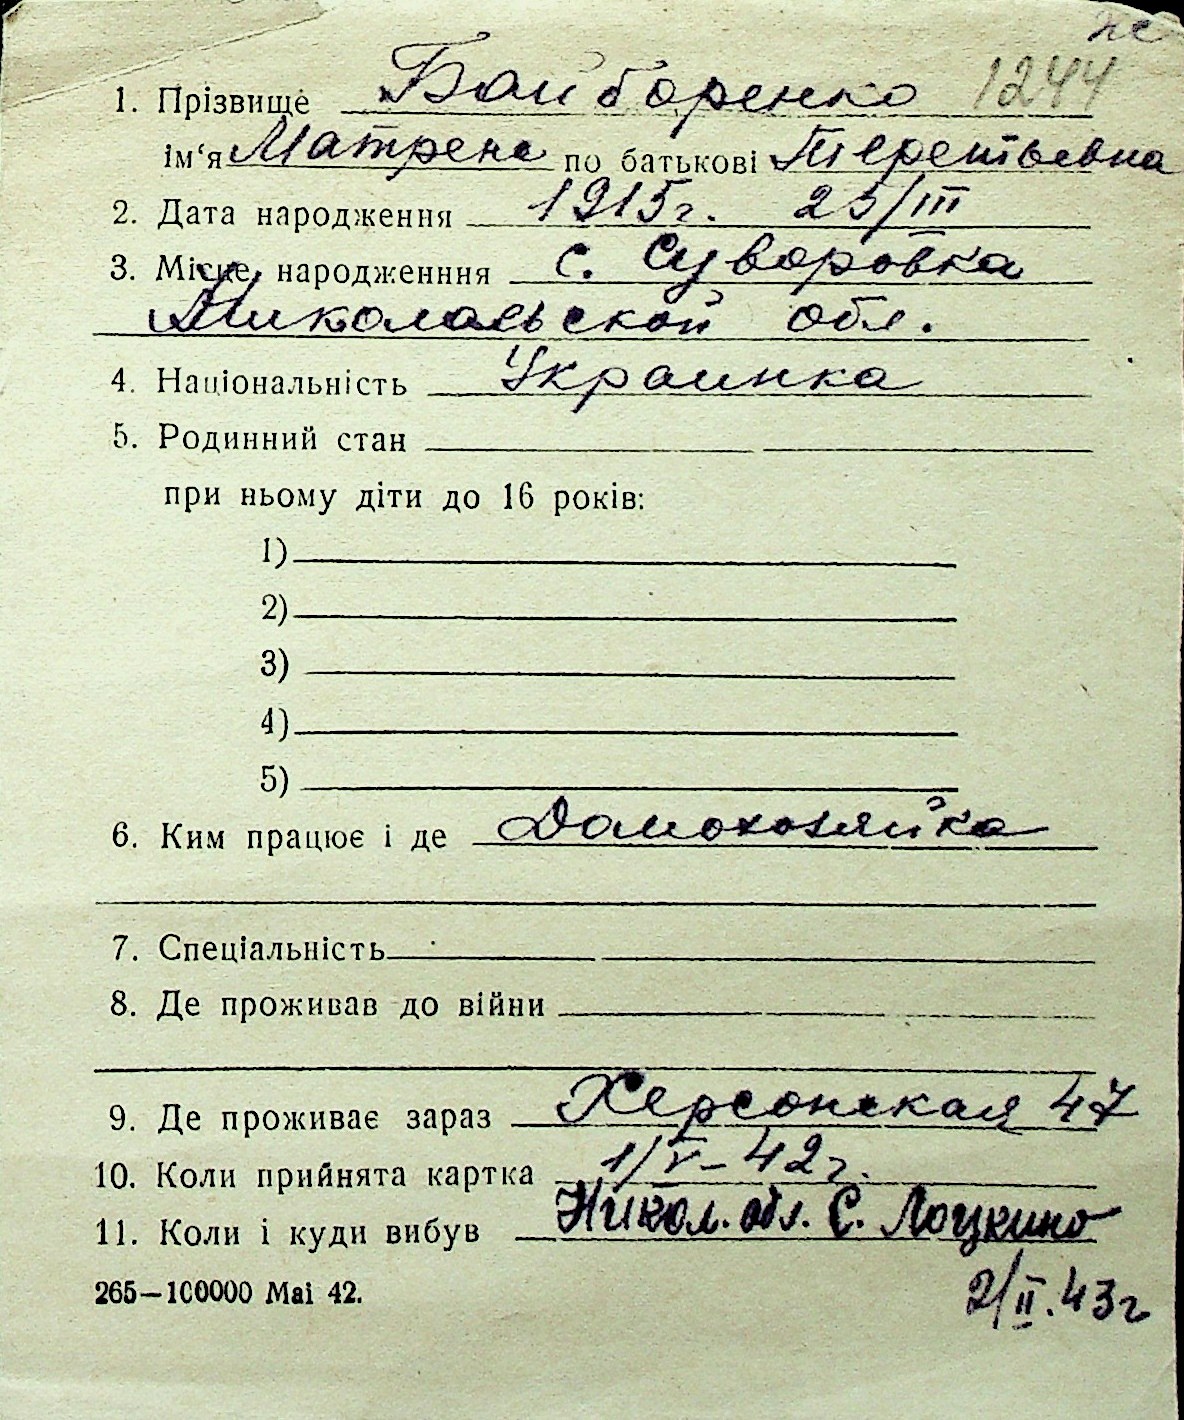 ж
1. Прізвище Байборенко 1244
ім‘я Матрена по батькові Терентьевна
2. Дата народження 1915г. 25/III
3. Місце народженння с. Суворовка
Николаевской обл.
4. Національність Украинка
5. Родинний стан
при ньому діти до 16 років:
1)
2)
3)
4)
5)
6. Ким працює і де Домохозяйка
7. Спеціальність
8. Де проживав до війни
9. Де проживає зараз Херсонская 47
10. Коли прийнята картка 1/V-42г.
11. Коли і куди вибув Никол. обл. С. Лоцкино
265—100000 Mai 42.
2/II.43г